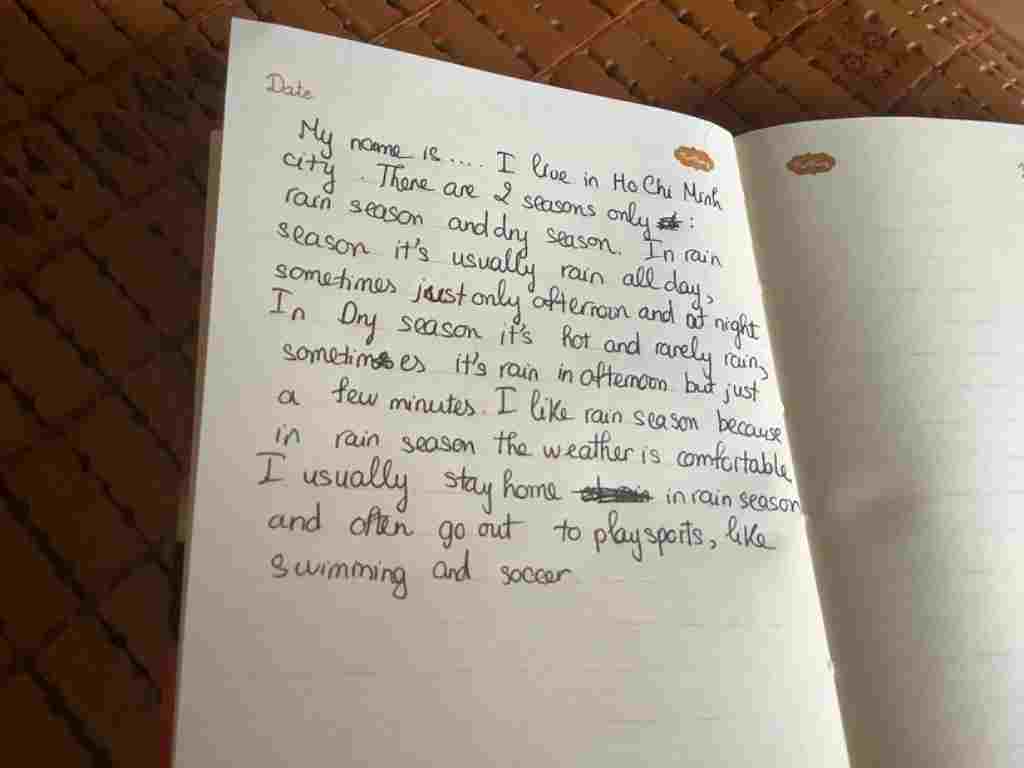 Date
My name is .... I live in Ho Chi Minh
city. There are 2 seasons only :
rain season and dry season. In rain
season it's usually rain all day,
sometimes just only afternoon and at night
In Dry season it's hot and rarely rain,
sometimes it's rain in afternoon but just
a few minutes. I like rain season because
in rain season the weather is comfortable
I usually stay home in rain season
and often go out to play sports, like
swimming and soccer